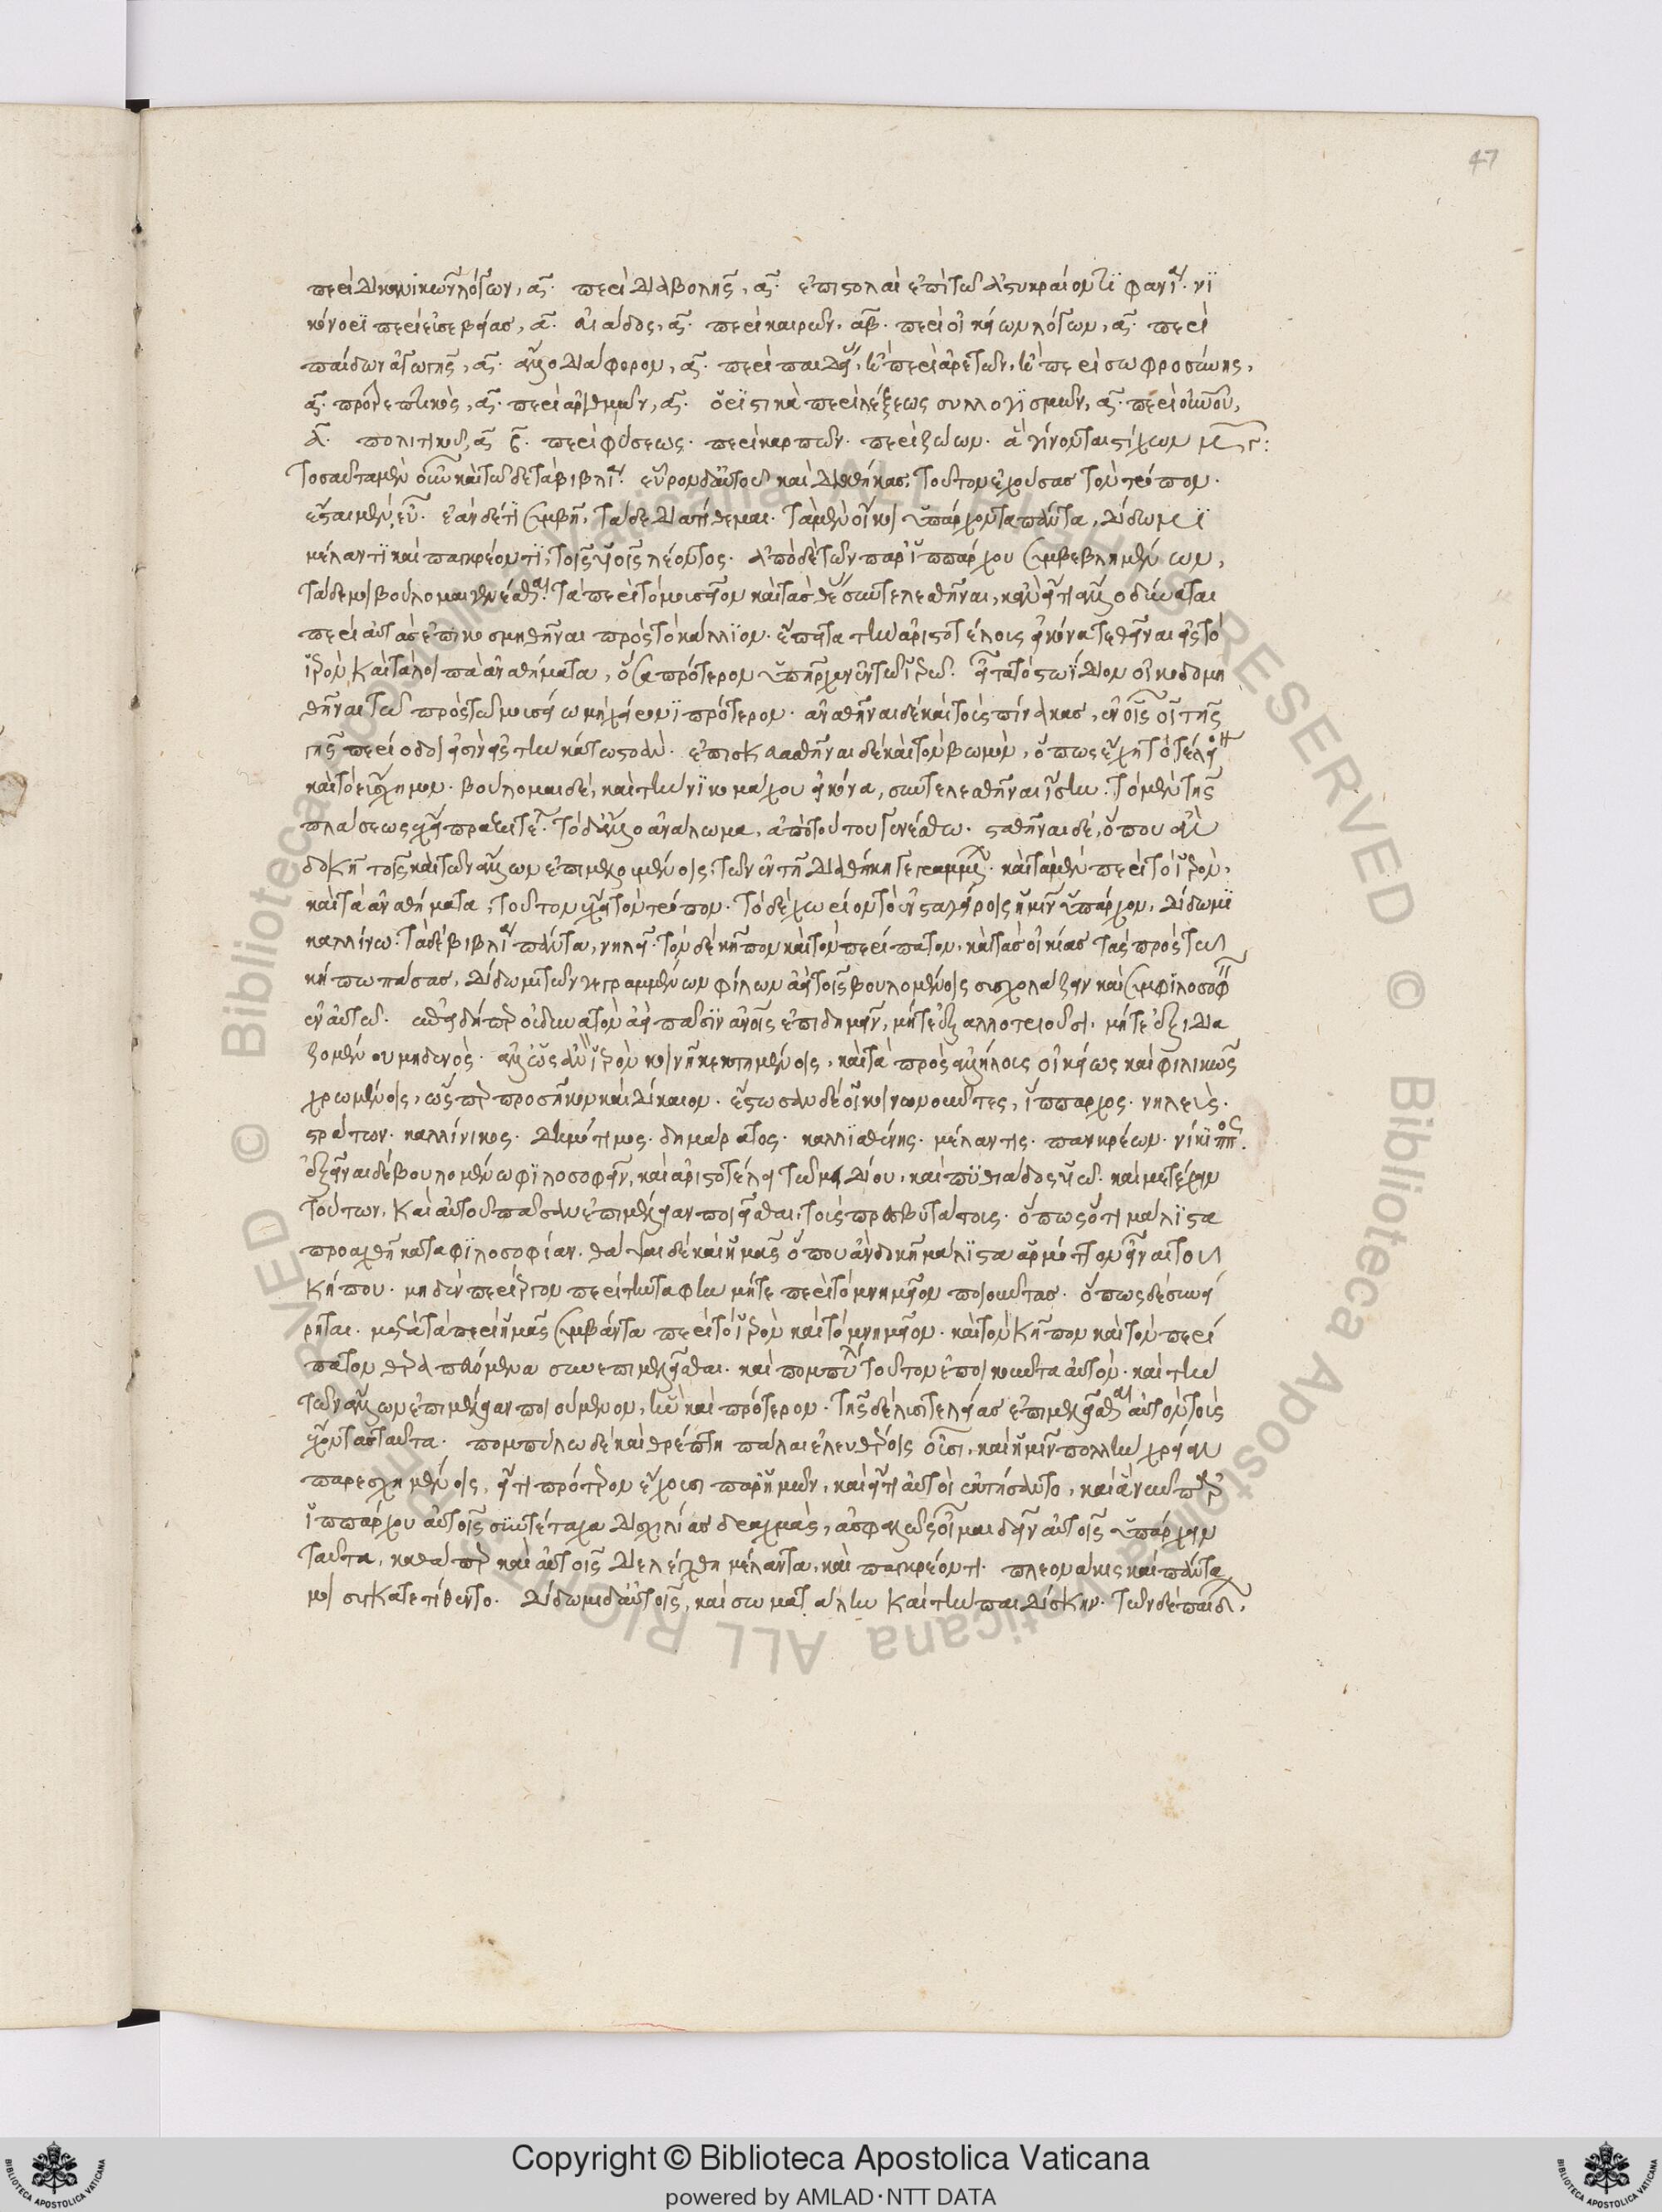 47
περὶ δικανικῶν λόγων, α. περὶ διαβολῆς, α. ἐπιστολαὶ ἐπὶ τῶ ἀστυκρέοντι φανί νι
κάνορϊ περὶ εὐσεβείας, α. αἰάδος, α. περὶ καιρῶν, αβ. περὶ οἰκείων λόγων, α. περὶ
παίδων ἀγωγῆς, α. ἄλλο διάφορον, α. περὶ παιδεί ἢ περὶ ἀρετῶν, ἢ περὶ σωφροσύνης,
α. προτρεπτικὸς, α. περὶ ἀριθμῶν, α. ὁριστικὰ περὶ λέξεως συλλογισμῶν, α. περὶ οὐρανοῦ,
α. πολιτικοῦ, α β. περὶ φύσεως. περὶ καρπῶν. περὶ ζώων. ἃ γίνονται στίχων
τοσαῦτα μὲν οὖν καὶ τῶδε τὰ βιβλία. εὗρον δ' αὐτοῦ καὶ διαθήκας, τοῦτον ἐχούσας τὸν τρόπον.
ἔσται μὲν εὖ. ἐὰν δέ τι συμβῆ, τάδε διατίθεμαι. τὰ μὲν οἴκοι ὑπάρχοντα πάντα, δίδωμϊ
μέλαντϊ καὶ παγκρέοντϊ, τοῖς υἱοῖς λέοντος. ἀπὸ δὲ τῶν παρ' ἱππάρχου συμβεβλημένων,
τάδε μοι βούλομαι γενέσθαι. τὰ περὶ τὸ μουσεῖον καὶ τὰς θεὰς συντελεσθῆναι, κἂν εἴ τι ἄλλο δύναται
περὶ αὐτὰς ἐπικοσμηθῆναι πρὸς τὸ κάλλϊον. ἔπειτα τὴν ἀριστοτέλους εἰκόνα τεθῆναι εἰς τὸ
ἱερὸν καὶ τὰ λοιπὰ ἀναθήματα, ὅσα πρότερον ὑπῆρχεν ἐν τῶ ἱερῶ. εἶτα τὸ στωΐδιον οἰκοδομη
θῆναι τῶ πρὸς τῶ μουσείω μὴ χεῖρονϊ πρότερον. ἀναθεῖναι δὲ καὶ τοὺς πίνακας, ἐν οἷς αἱ τῆς
γῆς περίοδοι εἰσὶν εἰς τὴν κάτω στοάν. ἐπισκευασθῆναι δὲ καὶ τὸν βωμὸν, ὅπως ἔχη τὸ τέλειον
καὶ τὸ εὔσχημον. βούλομαι δὲ, καὶ τὴν νικομάχου εἰκόνα, συντελεσθῆναι ἴσην. τὸ μὲν τῆς
πλάσεως ἔχει πραξιτέ. τὸ δ' ἄλλο ἀνάλωμα, ἀπὸ τούτου γενέσθω. σταθῆναι δὲ, ὅπου ἂν
δοκῆ τοῖς καὶ τῶν ἄλλων ἐπιμελομένοις, τῶν ἐν τῆ διαθήκη γεγραμμ. καὶ τὰ μὲν περὶ τὸ ἱερὸν,
καὶ τὰ ἀναθήματα, τοῦτον ἐχέτω τὸν τρόπον. τὸ δὲ χωρίον τὸ ἐν σταγείροις ἡμῖν ὑπάρχον, δίδωμϊ
καλλίνω. τὰ δὲ βιβλία πάντα, νηλεῖ. τὸν δὲ κῆπον καὶ τὸν περίπατον, καὶ τὰς οἰκίας τὰς πρὸς τῶ
κήπω πάσας, δίδωμι τῶν γεγραμμένων φίλων ἀεὶ τοῖς βουλομένοις συσχολάζειν καὶ συμφιλοσοφ
ἐν αὐτῶ. ἐπειδήπερ οὐ δυνατὸν ἀεὶ πᾶσϊν ἀνοῖς ἐπιδημεῖν, μήτε ἐξαλλοτριοῦσι, μήτε ἐξιδια
ζομένου μηδενός. ἀλλ' ὡς ἂν ἱερὸν κοινῆ κεκτημένοις, καὶ τὰ πρὸς ἀλλήλους οἰκείως καὶ φιλικῶς
χρωμένοις, ὥσπερ προσῆκον καὶ δίκαιον. ἔστωσαν δὲ οἱ κοινωνοῦντες, ἵππαρχος. νηλεὺς.
στράτων. καλλίνικος. δημότιμος. δημάρατος. καλλϊσθένης. μέλαντης. πανκρέων. νίκιππος.
ἐξεῖναι δὲ βουλομένω φϊλοσοφεῖν, καὶ ἀριστοτέλει τῶ μειδίου, καὶ πϋθιάδος υἱῶ. καὶ μετέχειν
τούτων. καὶ αὐτοῦ πᾶσαν ἐπιμέλειαν ποιεῖσθαι, τοὺς πρεσβυτάτους. ὅπως ὅτι μάλϊστα
προαχθῆ κατὰ φϊλοσοφίαν. θάψαι δὲ καὶ ἡμᾶς ὅπου ἂν δοκῆ μάλϊστα ἁρμόττον εἶναι τοῦ
κήπου. μηδὲν περίεργον περὶ τὴν ταφὴν μήτε περὶ τὸ μνημεῖον ποιοῦντας. ὅπως δὲ συνεί
ρηται. μετὰ τὰ περὶ ἡμᾶς συμβάντα περὶ τὸ ἱερὸν καὶ τὸ μνημεῖον. καὶ τὸν κῆπον καὶ τὸν περί
πατον θεραπευόμενα συνεπιμελεῖσθαι. καὶ πομπύλ τοῦτον ἐποικοῦντα αὐτὸν. καὶ τὴν
τῶν ἄλλων ἐπιμέλειαν ποιούμενον, ἣν καὶ πρότερον. τῆς δὲ λυσιτελείας ἐπιμελεῖσθαι αὐτοὺς τοὺς
ἔχοντας ταῦτα. πομπύλω δὲ καὶ θρέπτη πάλαι ἐλευθέροις οὖσι, καὶ ἡμῖν πολλὴν χρείαν
παρεσχημένοις, εἴ τι πρότερον ἔχουσι παρ' ἡμῶν, καὶ εἴ τι αὐτοὶ ἐκτήσαντο, καὶ ἃ νῦν παρ
ἱππάρχου αὐτοῖς συντέταχα δισχιλίας δραχμὰς, ἀσφαλῶς οἶμαι δεῖν αὐτοῖς ὑπάρχειν
ταῦτα, καθάπερ καὶ αὐτοῖς διελέχθη μέλαντα, καὶ παγκρέοντι πλεονάκις καὶ πάντα
μοι συγκατετίθεντο. δίδωμι δ' αὐτοῖς, καὶ σωματάλην καὶ τὴν παιδίσκην. τῶν δὲ παίδ,
Copyright © Biblioteca Apostolica Vaticana
powered by AMLAD·NTT DATA